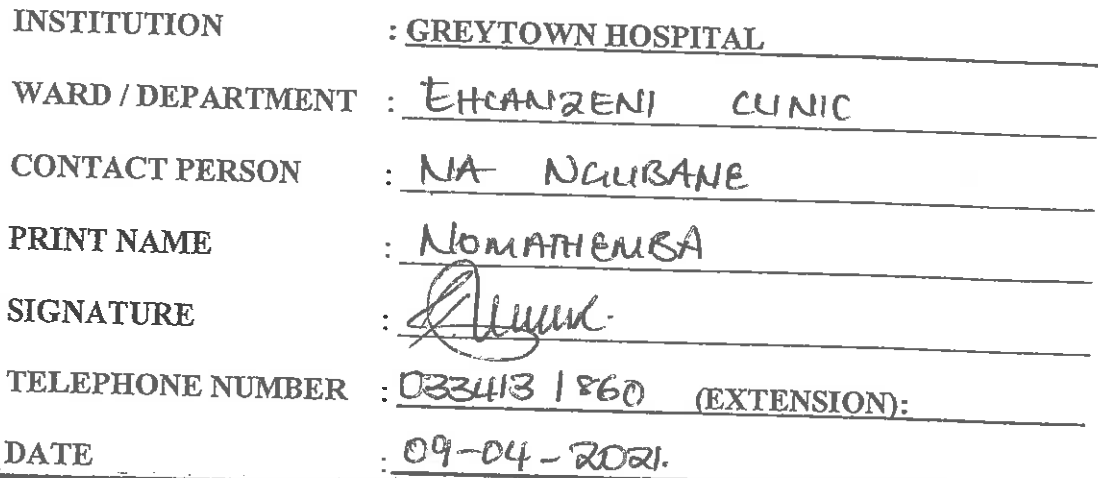 INSTITUTION : GREYTOWN HOSPITAL
WARD / DEPARTMENT : EHLANZENI CLINIC
CONTACT PERSON : NA NGUBANE
PRINT NAME : NOMATHEMBA
SIGNATURE :
TELEPHONE NUMBER : 0334131860 (EXTENSION):
DATE : 09-04-2021.